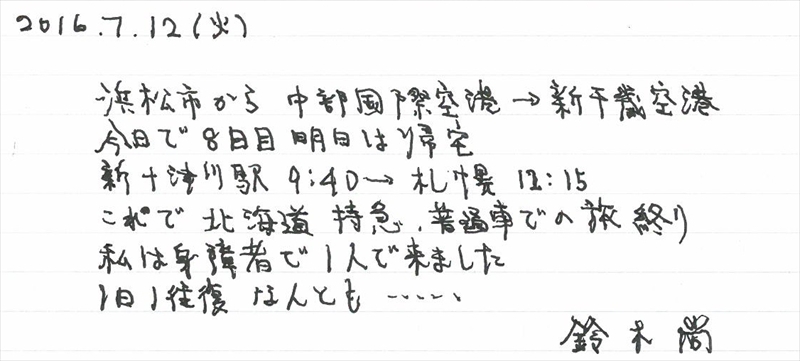 2016.7.12(火)
浜松市から 中部国際空港→新千歳空港
今日で8日目 明日は帰宅
新十津川駅 9:40→札幌 12:15
これで北海道 特急、普通車での旅終り
私は身障者で1人で来ました
1日1往復 なんとも……
鈴木尚